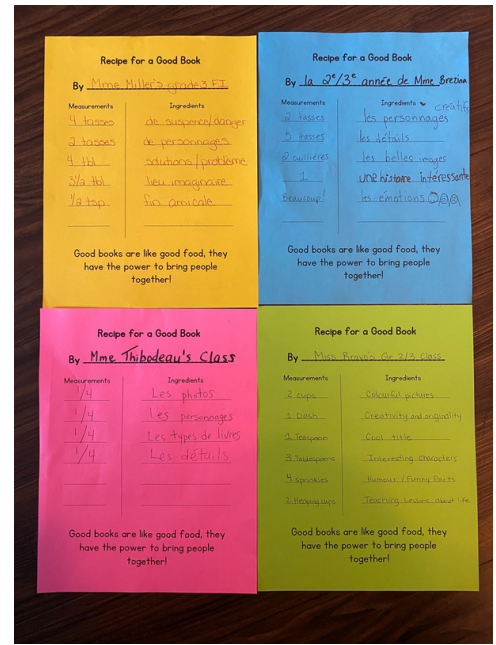 Recipe for a Good Book
By Mme Miller's grade 3 F.I.
Measurements Ingredients
4 tasses de suspense/danger
2 tasses de personnages
4 tbl solutions/problème
3½ tbl lieu imaginaire
½ tsp fin amicale
Good books are like good food, they
have the power to bring people
together!
Recipe for a Good Book
By la 2e/3e année de Mme Brezina
Measurements Ingredients
créatifs
2 tasses les personnages
5 tasses les détails
2 cuillières les belles images
1 une histoire intéressante
Beaucoup! les émotions
Good books are like good food, they
have the power to bring people
together!
Recipe for a Good Book
By Mme Thibodeau's Class
Measurements Ingredients
1/4 Les photos
1/4 Les personnages
1/4 Les types de livres
1/4 Les détails
Good books are like good food, they
have the power to bring people
together!
Recipe for a Good Book
By Miss Bravo's Gr. 2/3 Class
Measurements Ingredients
2 cups Colourful pictures
1 Dash Creativity and originality
1 Teaspoon Cool title
3 Tablespoons Interesting Characters
4 sprinkles Humour / Funny Parts
2 Heaping cups Teaching Lessons about life
Good books are like good food, they
have the power to bring people
together!